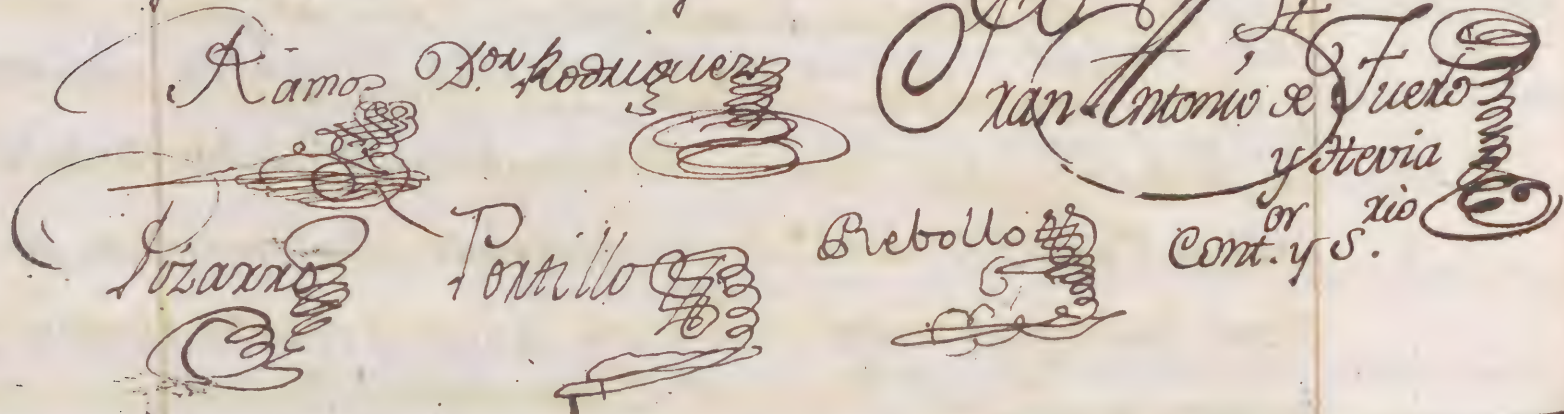 Ramos Dor. Rodriguez Fran Antonio de Fuero
y Hevia
Pizarro Portillo Rebollo Cont.or y S.rio